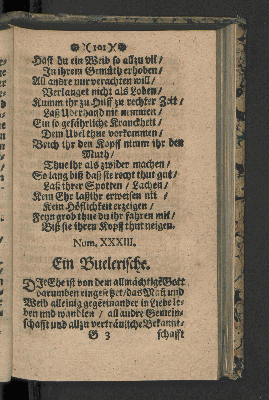 )( 101 )(
Hast du ein Weib so allzu vil /
In ihrem Gemüth erhoben /
All andre nur verachten will /
Verlanget nicht als Loben /
Kumm ihr zu Hilff zu rechter Zeit /
Laß Uberhand nit nemmen /
Ein so gefährliche Kranckheit /
Dem Ubel thue vorkommen /
Brich ihr den Kopff nimm ihr den
Muth /
Thue ihr als zwider machen /
So lang biß daß sie recht thut gut /
Laß ihrer Spotten / Lachen /
Kein Ehr laß ihr erweisen nit /
Kein Höfflichkeit erzeigen /
Feyn grob thue du ihr fahren mit /
Biß sie ihren Kopff thut neigen.
Num. XXXIII.
Ein Buelerische.
DIe Ehe ist von dem allmächtigē Gott
darumben eingesetzet / das Mañ und
Weib alleinig gegeneinander in Liebe le-
ben und wandlen / all andre Gemein-
schafft und allzu verträuliche Bekannt-
G 3 schafft